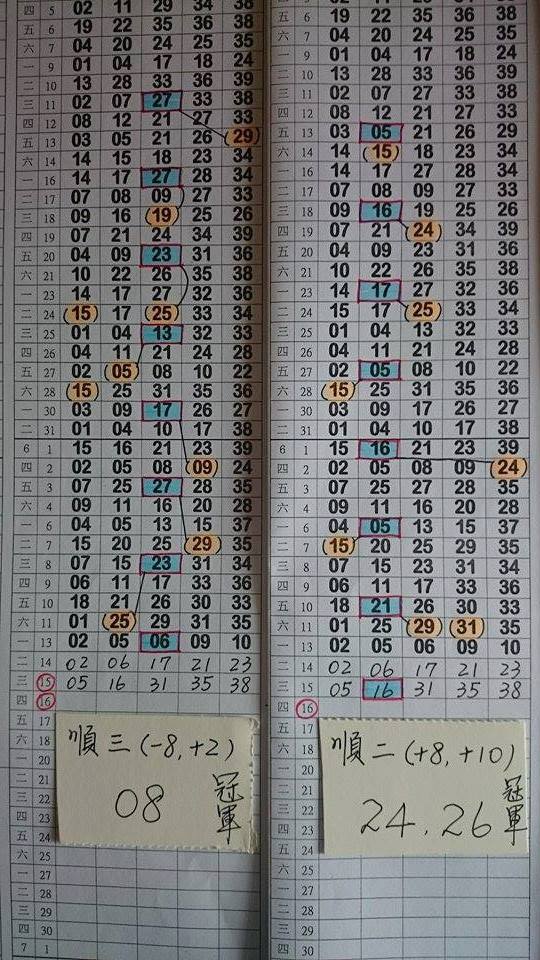 四 5 02 11 29 34 38
五 6 19 22 35 36 38
六 7 04 20 24 25 35
一 9 01 04 17 18 24
二 10 13 28 33 36 39
三 11 02 07 27 33 38
四 12 08 12 21 27 33
五 13 03 05 21 26 29
六 14 14 15 18 23 34
一 16 14 17 27 28 34
二 17 07 08 09 27 33
三 18 09 16 19 25 26
四 19 07 21 24 34 39
五 20 04 09 23 31 36
六 21 10 22 26 35 38
一 23 14 17 27 32 36
二 24 15 17 25 33 34
三 25 01 04 13 32 33
四 26 04 11 21 24 28
五 27 02 05 08 10 22
六 28 15 25 31 35 36
一 30 03 09 17 26 27
二 31 01 04 10 17 38
6 1 15 16 21 23 39
四 2 02 05 08 09 24
五 3 07 25 27 28 35
六 4 09 11 16 20 28
一 6 04 05 13 15 37
二 7 15 20 25 29 35
三 8 07 15 23 31 34
四 9 06 11 17 33 36
五 10 18 21 26 30 33
六 11 01 25 29 31 35
一 13 02 05 06 09 10
二 14 02 06 17 21 23
三 15 05 16 31 35 38
四 16
五 17
六 18
一 20
二 21
三 22
四 23
五 24
六 25
一 27
二 28
三 29
四 30
7 1
順三(-8,+2)
08
冠軍
五 6 19 22 35 36 38
六 7 04 20 24 25 35
一 9 01 04 17 18 24
二 10 13 28 33 36 39
三 11 02 07 27 33 38
四 12 08 12 21 27 33
五 13 03 05 21 26 29
六 14 14 15 18 23 34
一 16 14 17 27 28 34
二 17 07 08 09 27 33
三 18 09 16 19 25 26
四 19 07 21 24 34 39
五 20 04 09 23 31 36
六 21 10 22 26 35 38
一 23 14 17 27 32 36
二 24 15 17 25 33 34
三 25 01 04 13 32 33
四 26 04 11 21 24 28
五 27 02 05 08 10 22
六 28 15 25 31 35 36
一 30 03 09 17 26 27
二 31 01 04 10 17 38
6 1 15 16 21 23 39
四 2 02 05 08 09 24
五 3 07 25 27 28 35
六 4 09 11 16 20 28
一 6 04 05 13 15 37
二 7 15 20 25 29 35
三 8 07 15 23 31 34
四 9 06 11 17 33 36
五 10 18 21 26 30 33
六 11 01 25 29 31 35
一 13 02 05 06 09 10
二 14 02 06 17 21 23
三 15 05 16 31 35 38
四 16
五 17
六 18
一 20
二 21
三 22
四 23
五 24
六 25
一 27
二 28
三 29
四 30
順二(+8,+10)
24.26
冠軍